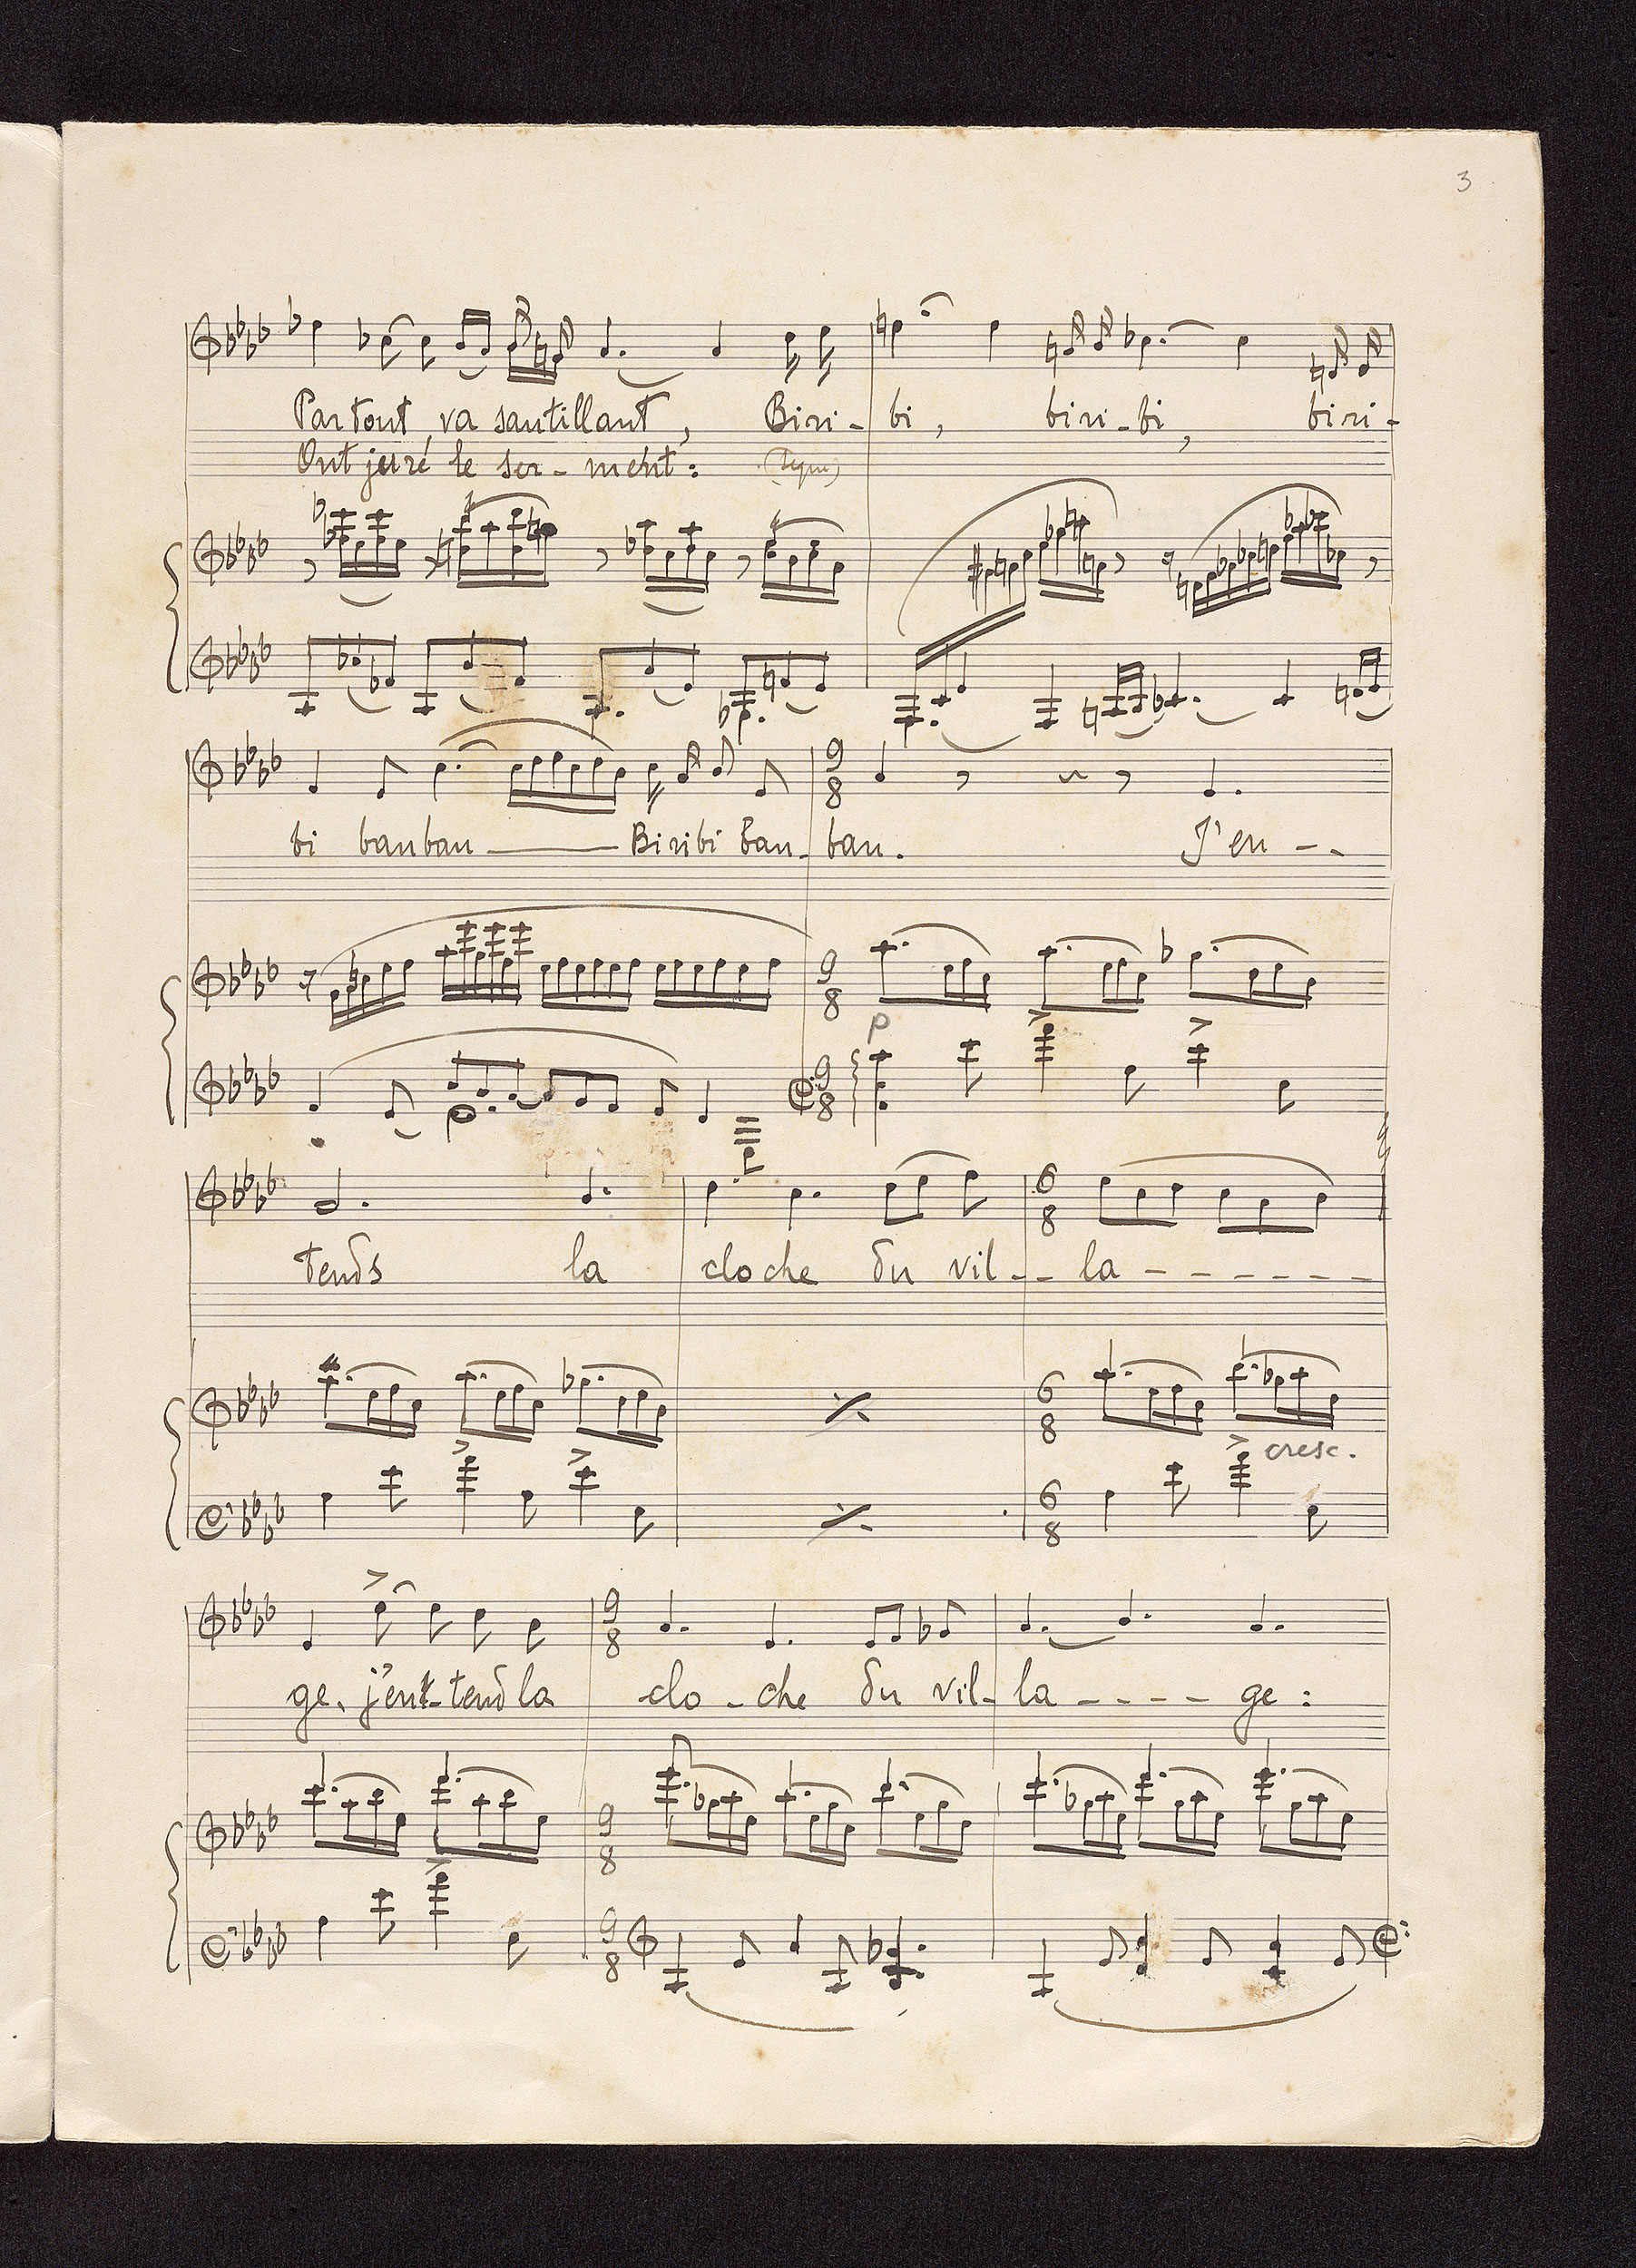 3
Partout va sautillant, Biri- bi, biri-bi, biri-
Ont juré le ser-ment:
bi banban Biribi ban- ban. J'en --
9
8
9
8
p
9
8
tends la cloche du vil-- la - - - - - -
6
8
6
8
cresc.
6
8
ge. j'ent-tend la clo-che du vil- la - - - - ge :
9
8
9
8
9
8